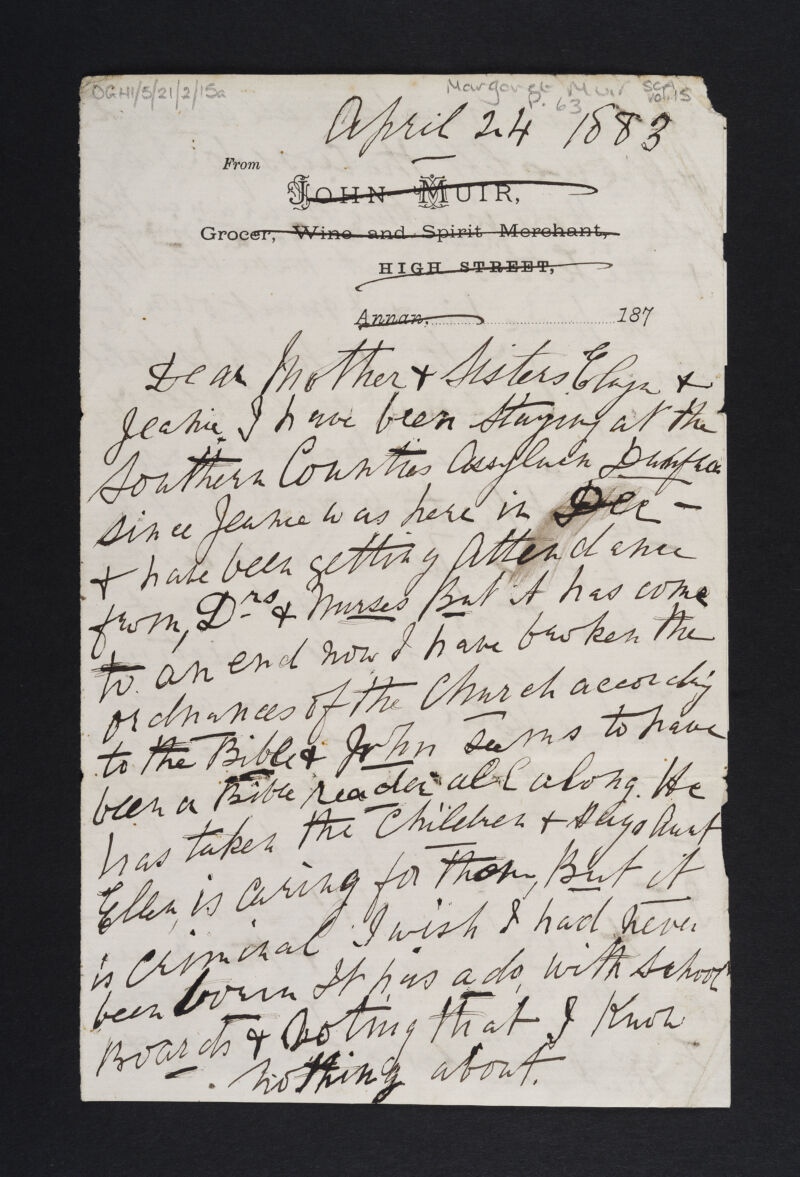 OGHI/5/21/2/15a
Margaret Muir SCA
p. 63 Vol. 15
April 24 1883
From
JOHN MUIR,
Grocer, Wine and Spirit Merchant,
HIGH STREET,
Annan, 187
Dear Mother & Sisters Eliza &
Jeanie I have been staying at the
Southern Counties Assylum
since Jeanie was here in Dec -
& have been getting attendance
from, Drs & Nurses But it has come
to an end now I have broken the
ordnances of the Church accordig
to the Bible & John seems to have
been a Bible reader all along. He
has taken the Children & says Aunt
Ellen, is caring for them, But it
is criminal I wish I had never
been born It has ado, with School
Boards & Voting that I know
nothing about.